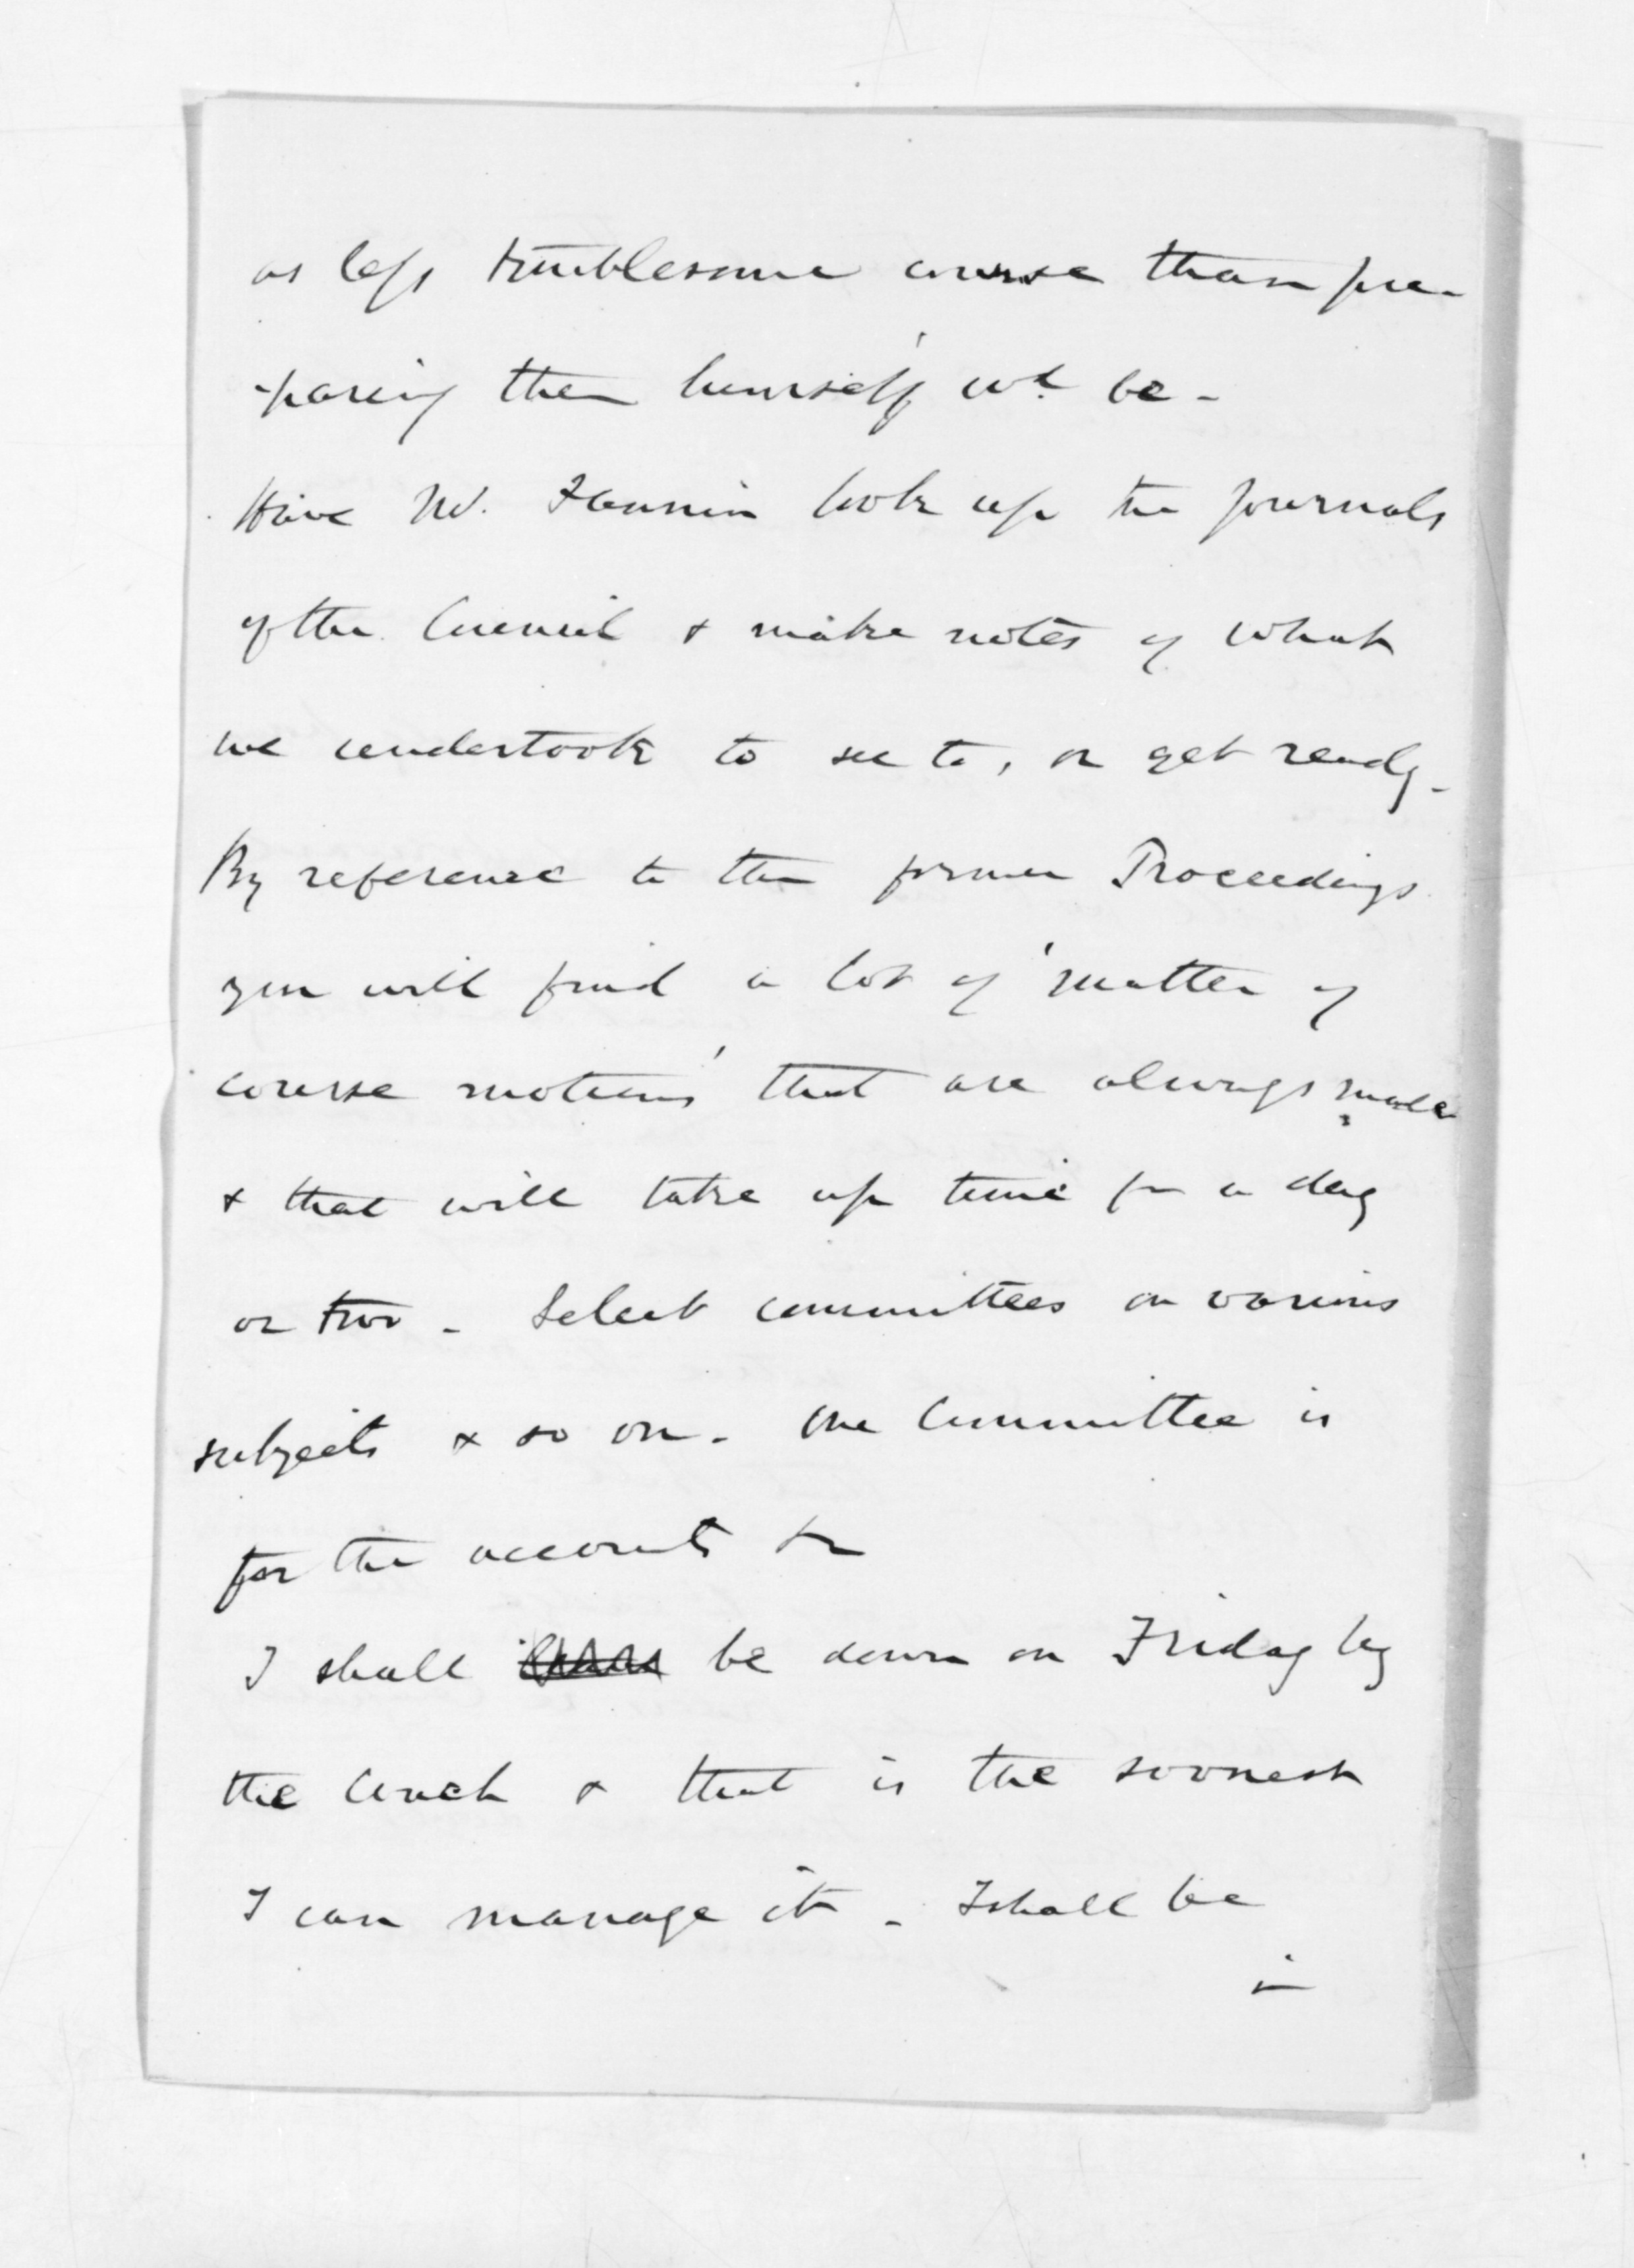 as less troublesome course than pre-
-paring them himself wd. be -
Have W. Fannin look up the journals
of the Council & make notes of what
we undertook to see to, or get ready -
By reference to the former Proceedings
you will find a lot of 'matter of
course motions' that are always made
& that will take up time for a day
or two - Select committees on various
subjects & so on - One Committee is
for the accounts &c
I shall be down on Friday by
the coach & that is the soonest
I can manage it - I shall be
in